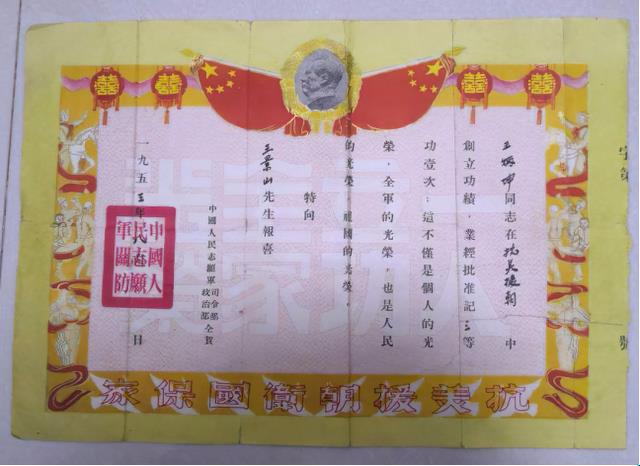 囍 囍 囍 囍
字第 號
王振坤同志在抗美援朝中
創立功績，業經批准記三等
功壹次：這不僅是個人的光
榮，全軍的光榮，也是人民
的光榮，祖國的光榮。
特向
王景山先生報喜
中國人民志願軍司令部
政治部仝賀
一九五三年 日
中國人
民志願
軍關防
抗美援朝衛國保家